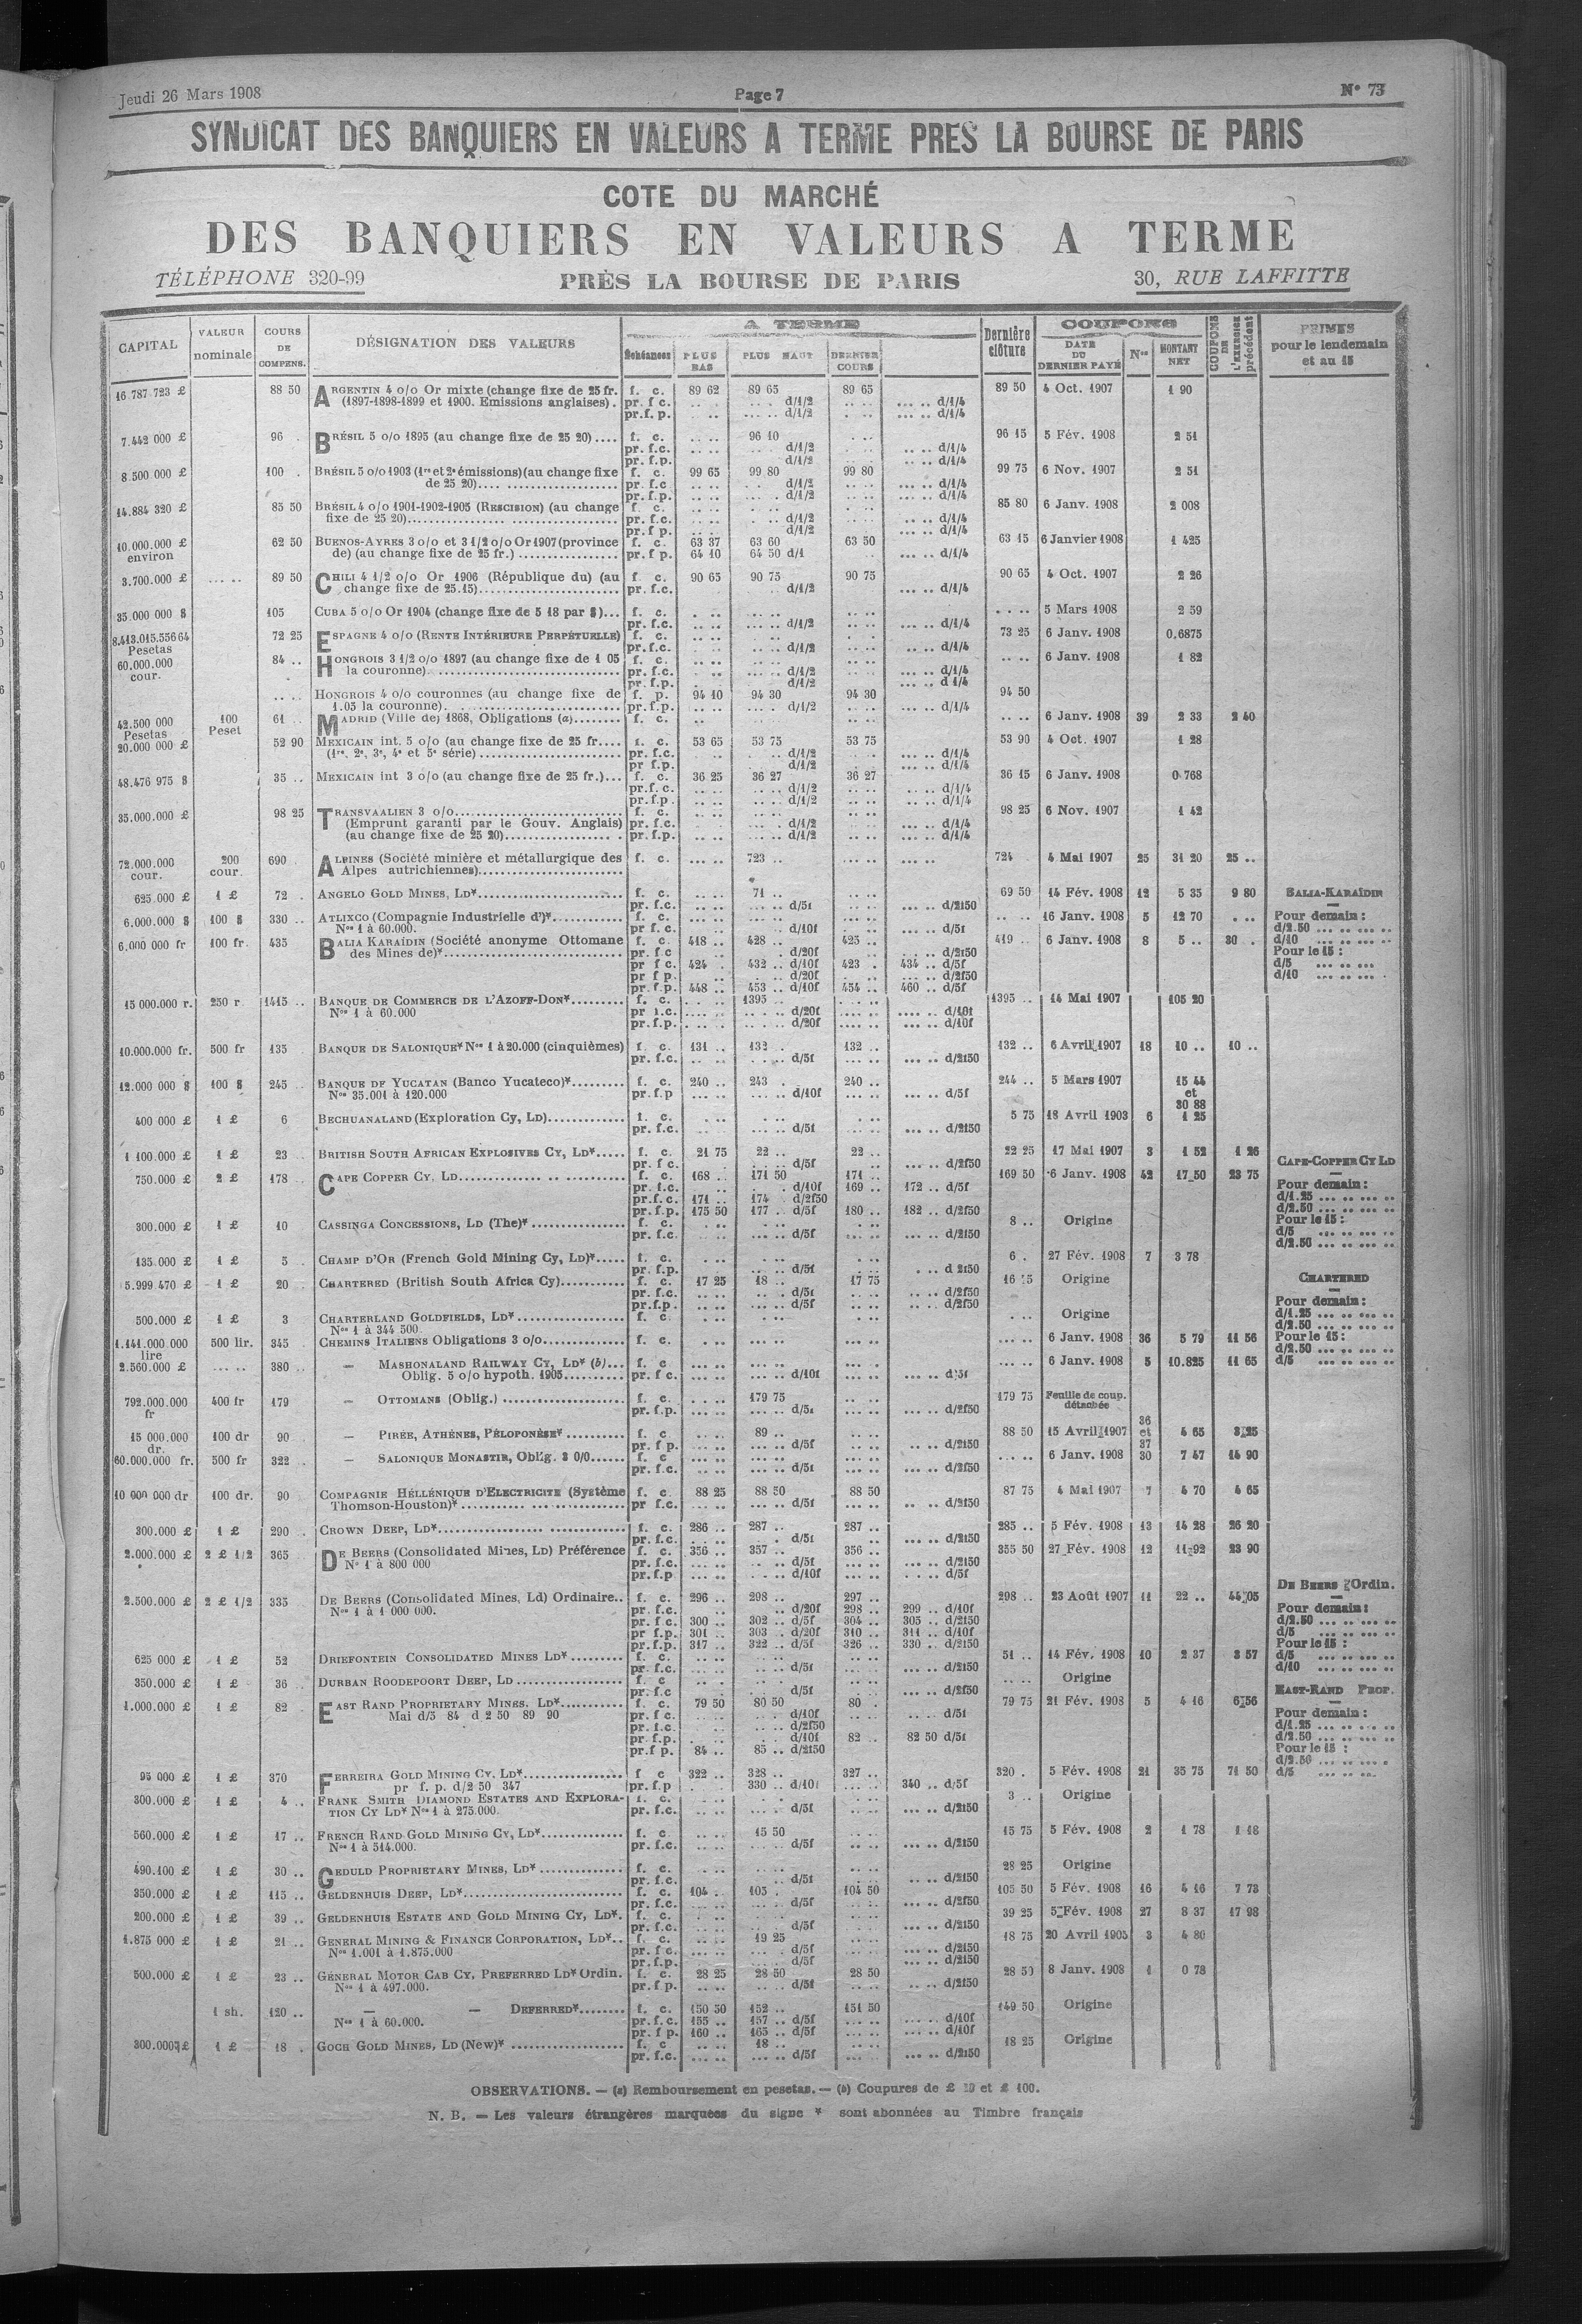 Jeudi 26 Mars 1908 Page 7 N° 73
SYNDICAT DES BANQUIERS EN VALEURS A TERME PRES LA BOURSE DE PARIS
COTE DU MARCHÉ
DES BANQUIERS EN VALEURS A TERME
TÉLÉPHONE 320-99 PRÈS LA BOURSE DE PARIS 30, RUE LAFFITTE
CAPITAL VALEUR nominale COURS DE COMPENS. DÉSIGNATION DES VALEURS A TERME Échéances PLUS BAS PLUS HAUT DERNIER COURS Dernière clôture COUPONS DATE DU DERNIER PAYÉ Nos MONTANT NET COUPONS DE L'EXERCICE précédent PRIMES pour le lendemain et au 15
16 787 723 £ 88 50 ARGENTIN 4 o/o Or mixte (change fixe de 25 fr. f. c. 89 62 89 65 89 65 89 50 4 Oct. 1907 1 90
(1897-1898-1899 et 1900. Emissions anglaises). pr. f c. d/1/2 d/1/4
pr.f. p. d/1/2 d/1/4
7.442 000 £ 96 . BRÉSIL 5 o/o 1895 (au change fixe de 25 20).... f. c. 96 10 96 15 5 Fév. 1908 2 51
pr. f.c. d/1/2 d/1/4
pr. f.p. d/1/2 d/1/4
8.500 000 £ 100 . BRÉSIL 5 o/o 1903 (1re et 2e émissions)(au change fixe f. c. 99 65 99 80 99 80 99 75 6 Nov. 1907 2 51
de 25 20).... pr. f.c d/1/2 d/1/4
pr. f.p. d/1/2 d/1/4
14.884 320 £ 85 50 BRÉSIL 4 o/o 1901-1902-1905 (RESCISION) (au change f. c. 85 80 6 Janv. 1908 2 008
fixe de 25 20)... pr. f.c. d/1/2 d/1/4
pr. f p. d/1/2 d/1/4
10.000.000 £ environ 62 50 BUENOS-AYRES 3 o/o et 3 1/2 o/o Or 1907 (province f. c. 63 37 63 60 63 50 63 15 6 Janvier 1908 1 425
de) (au change fixe de 25 fr.) ... pr. f p. 64 10 64 50 d/1 d/1/4
3.700.000 £ 89 50 CHILI 4 1/2 o/o Or 1906 (République du) (au f. c. 90 65 90 75 90 75 90 65 4 Oct. 1907 2 26
change fixe de 25.15)... pr. f.c. d/1/2 d/1/4
35.000 000 $ 105 CUBA 5 o/o Or 1904 (change fixe de 5 18 par $)... f. c. 5 Mars 1908 2 59
pr. f.c. d/1/2 d/1/4
8.413.015.556 64 Pesetas 72 25 ESPAGNE 4 o/o (RENTE INTÉRIEURE PERPÉTUELLE) f. c. 73 25 6 Janv. 1908 0,6875
pr. f.c. d/1/2 d/1/4
60.000.000 cour. 84 .. HONGROIS 3 1/2 o/o 1897 (au change fixe de 1 05 f. c. 6 Janv. 1908 1 82
la couronne)... pr. f.c. d/1/2 d/1/4
pr. f.p. d/1/2 d 1/4
HONGROIS 4 o/o couronnes (au change fixe de f. p. 94 10 94 30 94 30 94 50
1.05 la couronne). pr. f.p. d/1/2 d/1/4
42.500 000 Pesetas 100 Peset 61 .. MADRID (Ville de) 1868, Obligations (a)... f. c. 6 Janv. 1908 39 2 33 2 40
20.000 000 £ 52 90 MEXICAIN int. 5 o/o (au change fixe de 25 fr.... f. c. 53 65 53 75 53 75 53 90 4 Oct. 1907 1 28
(1re, 2e, 3e, 4e et 5e série)... pr. f.c. d/1/2 d/1/4
pr f.p. d/1/2 d/1/4
48.476 975 $ 35 .. MEXICAIN int 3 o/o (au change fixe de 25 fr.)... f. c. 36 25 36 27 36 27 36 15 6 Janv. 1908 0 768
pr.f. c. d/1/2 d/1/4
pr.f.p. d/1/2 d/1/4
35.000.000 £ 98 25 TRANSVAALIEN 3 o/o... f. c. 98 25 6 Nov. 1907 1 42
(Emprunt garanti par le Gouv. Anglais) pr. f.c. d/1/2 d/1/4
(au change fixe de 25 20)... pr. f.p. d/1/2 d/1/4
72.000.000 cour. 200 cour. 690 ALPINES (Société minière et métallurgique des f. c. 723 .. 724 4 Mai 1907 25 31 20 25 ..
Alpes autrichiennes)...
625.000 £ 1 £ 72 . ANGELO GOLD MINES, LD*... f. c. 71 .. 69 50 14 Fév. 1908 12 5 35 9 80 BALIA-KARAÏDIN
pr. f.c. d/5f d/2f50
6.000.000 $ 100 $ 330 .. ATLIXCO (Compagnie Industrielle d')*... f. c. 16 Janv. 1908 5 12 70 Pour demain :
Nos 1 à 60.000. pr f. c. d/10f d/5f d/2.50
6,000 000 fr 100 fr. 435 BALIA KARAÏDIN (Société anonyme Ottomane f. c. 418 .. 428 .. 425 .. 419 .. 6 Janv. 1908 8 5 .. 30 . d/10
des Mines de)*... pr f.c d/20f d/2f50 Pour le 15 :
pr f c. 424 . 432 .. d/10f 423 . 434 .. d/5f d/5
pr f p. d/20f d/2f50 d/10
pr. f.p. 448 .. 453 .. d/10f 454 .. 460 .. d/5f
15 000.000 r. 250 r 1415 .. BANQUE DE COMMERCE DE L'AZOFF-DON*... f. c. 1395 1395 .. 14 Mai 1907 105 20
Nos 1 à 60.000 pr f.c. d/20f d/10f
pr. f.p. d/20f d/10f
10.000.000 fr. 500 fr 135 BANQUE DE SALONIQUE* Nos 1 à 20.000 (cinquièmes) f. c. 131 .. 132 . 132 .. 132 .. 6 Avril 1907 18 10 .. 10 ..
pr. f.c. d/5f d/2f50
12.000 000 $ 100 $ 245 BANQUE DE YUCATAN (Banco Yucateco)*... f. c. 240 .. 243 . 240 .. 244 .. 5 Mars 1907 15 44
Nos 35.001 à 120.000 pr. f.p d/10f d/5f et 30 88
400 000 £ 1 £ 6 BECHUANALAND (Exploration Cy, LD)... f. c. 5 75 18 Avril 1903 6 1 25
pr. f.c. d/5f d/2f50
1 100.000 £ 1 £ 23 BRITISH SOUTH AFRICAN EXPLOSIVES CY, LD*... f. c. 21 75 22 .. 22 .. 22 25 17 Mai 1907 3 1 52 1 26
pr. f c. d/5f d/2f50 CAPE-COPPER CY LD
750.000 £ 2 £ 178 CAPE COPPER CY. LD... f. c. 168 .. 171 50 171 .. 169 50 6 Janv. 1908 42 17,50 23 75
pr. f.c. d/10f 169 .. 172 .. d/5f Pour demain :
pr.f. c. 171 .. 174 .. d/2f50 d/1.25
pr. f.p. 175 50 177 .. d/5f 180 .. 182 .. d/2f50 d/2.50
300.000 £ 1 £ 10 CASSINGA CONCESSIONS, LD (The)*... f. c. 8 .. Origine Pour le 15 :
pr. f.c. d/5f d/2f50 d/5
d/2.50
135.000 £ 1 £ 5 . CHAMP D'OR (French Gold Mining Cy, LD)*... f. c. 6 . 27 Fév. 1908 7 3 78
pr. f.p. d/5f d 2f50
5.999 470 £ 1 £ 20 . CHARTERED (British South Africa Cy)... f. c. 17 25 18 .. 17 75 Origine CHARTERED
pr. f.c. d/5f d/2f50
pr.f.p. d/5f d/2f50 Pour demain :
500.000 £ 1 £ 3 CHARTERLAND GOLDFIELDS, LD*... f. c. Origine d/1.25
Nos 1 à 344 500. d/2.50
1.141.000.000 lire 500 lir. 345 CHEMINS ITALIENS Obligations 3 o/o... f. c. 6 Janv. 1908 36 5 79 11 56 Pour le 15 :
d/2.50
2.560.000 £ 380 .. — MASHONALAND RAILWAY CY, LD* (b)... f. c 6 Janv. 1908 5 10.825 11 65 d/5
Oblig. 5 o/o hypoth. 1905... pr. f c. d/10f d/5f
792.000.000 fr 400 fr 179 — OTTOMANS (Oblig.) ... f. c. 179 75 179 75 Feuille de coup. détachée
pr. f.p. d/5f d/2f50
15 000.000 dr. 100 dr 90 — PIRÉE, ATHÈNES, PÉLOPONÈSE*... f. c 89 .. 88 50 15 Avril 1907 36 et 37 4 65 3,25
pr. f p. d/5f d/2f50
60.000.000 fr. 500 fr 322 — SALONIQUE MONASTIR, Oblig. 3 0/0... f. c 6 Janv. 1908 30 7 47 14 90
pr. f.c. d/5f d/2f50
10 000 000 dr 100 dr. 90 COMPAGNIE HÉLLÉNIQUE D'ELECTRICITE (Système f. c. 88 25 88 50 88 50 87 75 4 Mai 1907 7 4 70 4 65
Thomson-Houston)*... pr f.c. d/5f d/2f50
300.000 £ 1 £ 290 . CROWN DEEP, LD*... f. c. 286 .. 287 .. 287 .. 285 .. 5 Fév. 1908 13 14 28 26 20
pr. f.c. d/5f d/2f50
2.000.000 £ 2 £ 1/2 365 DE BEERS (Consolidated Mines, LD) Préférence f. c. 356 .. 357 .. 356 .. 355 50 27 Fév. 1908 12 11-92 23 90
Nos 1 à 800 000 pr. f.c. d/5f d/2f50
pr. f.p d/10f d/5f
DE BEERS Ordin.
2.500.000 £ 2 £ 1/2 335 DE BEERS (Consolidated Mines, Ld) Ordinaire.. f. c. 296 .. 298 .. 297 .. 298 .. 23 Août 1907 11 22 .. 44,05
Nos 1 à 1 000 000. pr. f.c. d/20f 298 .. 299 .. d/10f Pour demain :
pr. f c. 300 .. 302 .. d/5f 304 .. 305 .. d/2f50 d/2.50
pr f.p. 301 .. 303 . d/20f 310 .. 311 .. d/10f d/5
pr. f.p. 317 .. 322 .. d/5f 326 .. 330 .. d/2f50 Pour le 15 :
625 000 £ 1 £ 52 DRIEFONTEIN CONSOLIDATED MINES LD*... f. c. 51 .. 14 Fév. 1908 10 2 37 3 57 d/5
pr. f.c. d/5f d/2f50 d/10
350.000 £ 1 £ 36 . DURBAN ROODEPOORT DEEP, LD ... f. c Origine
pr. f.c d/5f d/2f50 EAST-RAND PROP.
1.000.000 £ 1 £ 82 EAST RAND PROPRIETARY MINES. LD*... f. c. 79 50 80 50 80 . 79 75 21 Fév. 1908 5 4 16 6,56
Mai d/5 84 d 2 50 89 90 pr. f c. d/10f d/5f Pour demain :
pr. f.c. d/2f50 d/1.25
pr. f.p. d/10f 82 .. 82 50 d/5f d/2.50
pr.f p. 84 .. 85 .. d/2f50 Pour le 15 :
d/2.50
95 000 £ 1 £ 370 FERREIRA GOLD MINING CY. LD*... f c 322 .. 328 .. 327 .. 320 . 5 Fév. 1908 21 35 75 71 50 d/5
pr f. p. d/2 50 347 pr. f.p 330 .. d/10f 340 .. d/5f
300.000 £ 1 £ 4 .. FRANK SMITH DIAMOND ESTATES AND EXPLORA- f. c. 3 .. Origine
TION CY LD* Nos 1 à 275.000. pr. f.c. d/5f d/2f50
560.000 £ 1 £ 17 .. FRENCH RAND GOLD MINING CY, LD*... f. c 15 50 15 75 5 Fév. 1908 2 1 78 1 18
Nos 1 à 514.000. pr. f.c. d/5f d/2f50
490.100 £ 1 £ 30 .. GEDULD PROPRIETARY MINES, LD*... f. c. 28 25 Origine
pr. f.c. d/5f d/2f50
350.000 £ 1 £ 115 .. GELDENHUIS DEEP, LD*... f. c. 104 . 105 . 104 50 105 50 5 Fév. 1908 16 4 16 7 73
pr. f.c. d/5f d/2f50
200.000 £ 1 £ 39 .. GELDENHUIS ESTATE AND GOLD MINING CY, LD*. f. c. 39 25 5 Fév. 1908 27 8 37 17 98
pr. f.c. d/5f d/2f50
1.875 000 £ 1 £ 21 .. GENERAL MINING & FINANCE CORPORATION, LD*.. f. c. 19 25 18 75 20 Avril 1905 3 4 80
Nos 1.001 à 1.875.000 pr. f c. d/5f d/2f50
pr. f.p. d/5f d/2f50
500.000 £ 1 £ 23 .. GÉNÉRAL MOTOR CAB CY, PREFERRED LD* Ordin. f. c. 28 25 28 50 28 50 28 50 8 Janv. 1908 1 0 78
Nos 1 à 497.000. pr. f p. d/5f d/2f50
1 sh. 120 .. — — DEFERRED*... f. c. 150 50 152 .. 151 50 149 50 Origine
Nos 1 à 60.000. pr. f. c. 155 .. 157 .. d/5f d/10f
pr. f p. 160 .. 165 .. d/5f d/10f
300.000 £ 1 £ 18 . GOCH GOLD MINES, LD (New)*... f. c 18 .. 18 25 Origine
pr. f.c. d/5f d/2f50
OBSERVATIONS. — (a) Remboursement en pesetas. — (b) Coupures de £ 20 et £ 100.
N. B. — Les valeurs étrangères marquées du signe * sont abonnées au Timbre français